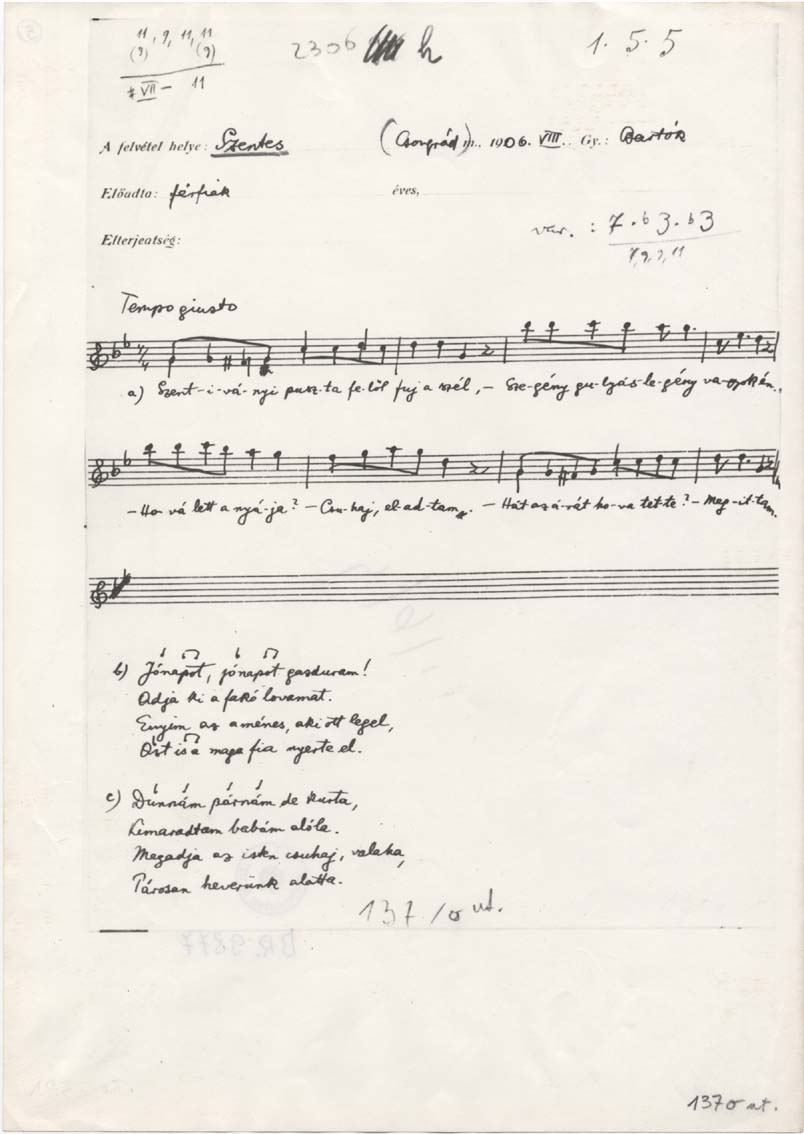 11, 9, 11, 11
(9) (9)
# VII – 11
2306
h
1. 5. 5
A felvétel helye: Szentes (Csongrád) m., 1906. VIII. Gy.: Bartók
Előadta: férfiak éves,
Elterjedtség:
var. : 7. b3. b3
9, 9, 11
Tempo giusto
a) Szent-i-vá-nyi pusz-ta fe-löl fuj a szél, – Sze-gény gu-lyás-le-gény va-gyok én.
– Ho-vá lett a nyá-ja? – Csu-haj, el-ad-tam. – Hát az á-rát ho-va tet-te? – Meg-it-tam.
b) Jónapot, jónapot gazduram!
Adja ki a fakó lovamat.
Enyim az a ménes, aki ott legel,
Azt is a maga fia nyerte el.
c) Dunnám párnám de kurta,
Kimaradtam babám alóla.
Megadja az isten csuhaj, valaha,
Párosan heverünk alatta.
137/o ut.
BR. 9877
137 o ut.